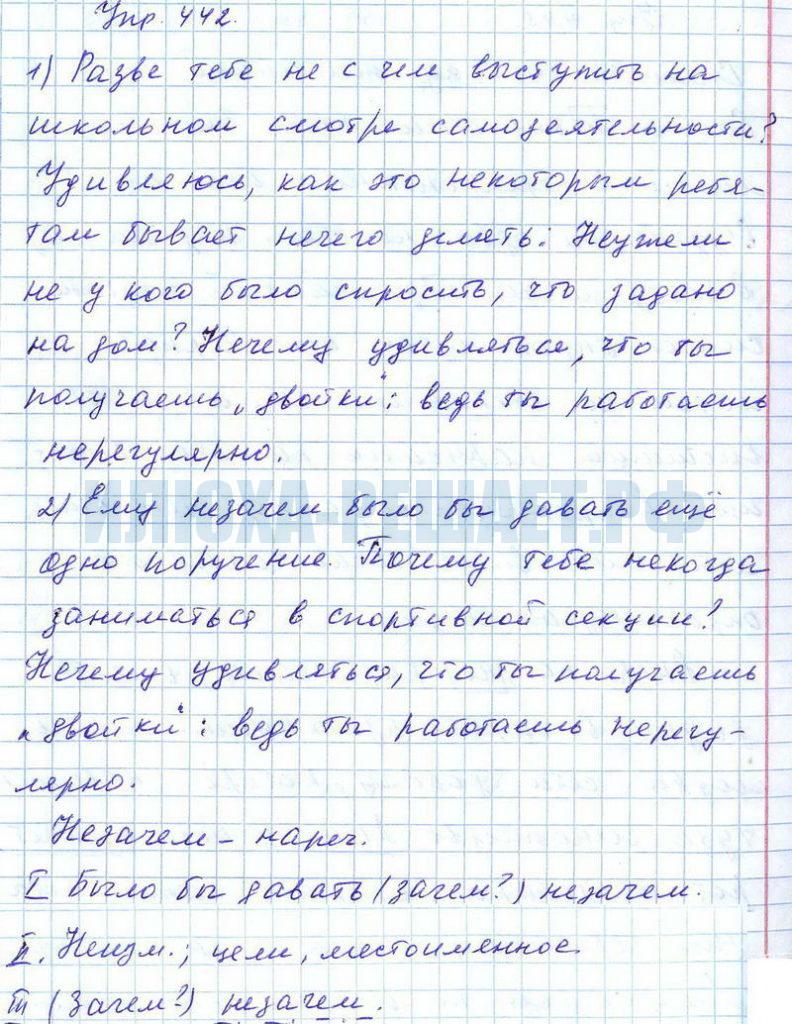 Упр. 442.
1) Разве тебе не с чем выступить на
школьном смотре самодеятельности?
Удивляюсь, как это некоторым ребя-
там бывает нечего делать. Неужели
не у кого было спросить, что задано
на дом? Нечему удивляться, что ты
получаешь „двойки“: ведь ты работаешь
нерегулярно.
ИЛЮХА-РЕШАЕТ.РФ
2) Ему незачем было бы давать ещё
одно поручение. Почему тебе некогда
заниматься в спортивной секции?
Нечему удивляться, что ты получаешь
„двойки“: ведь ты работаешь нерегу-
лярно.
Незачем – нареч.
I Было бы давать (зачем?) незачем.
II. Неизм.; цели, местоименное
III (Зачем?) незачем.